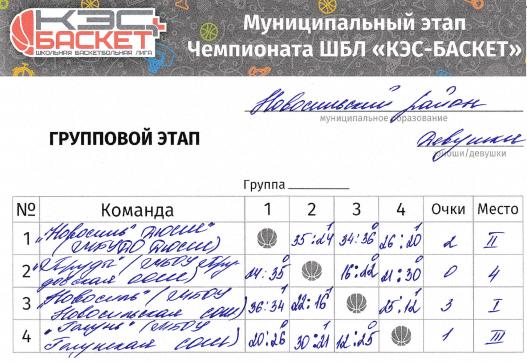 КЭС
БАСКЕТ
ШКОЛЬНАЯ БАСКЕТБОЛЬНАЯ ЛИГА
Муниципальный этап
Чемпионата ШБЛ «КЭС-БАСКЕТ»
Новосильский район
муниципальное образование
ГРУППОВОЙ ЭТАП
Девушки
юноши/девушки
Группа
№ Команда 1 2 3 4 Очки Место
1 "Новосиль" ДЮСШ (МБУ ДО ДЮСШ) 35:24 34:36 26:20 2 II
2 "Пруды" (МБОУ Прудовская СОШ) 24:35 16:22 21:30 0 4
3 "Новосиль" (МБОУ Новосильская СОШ) 36:34 22:16 25:12 3 I
4 "Голунь" (МБОУ Голунская СОШ) 20:26 30:21 12:25 1 III